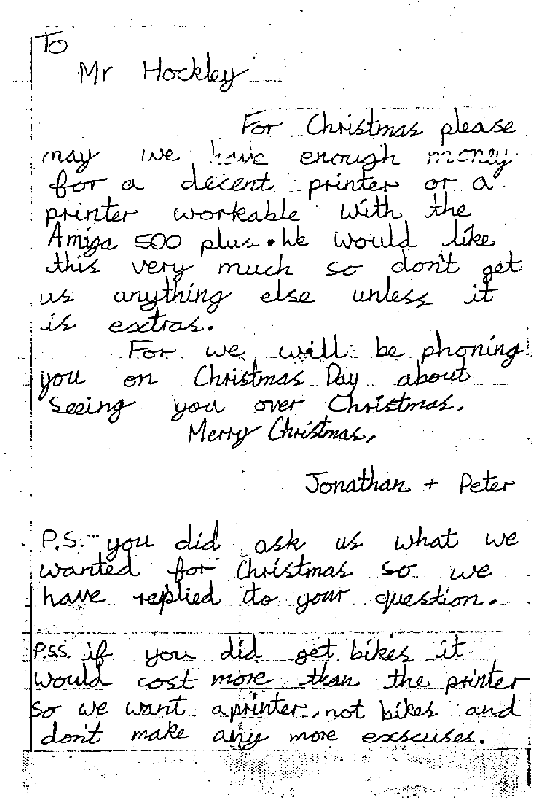 To
Mr Hockley
For Christmas please
may we have enough money
for a decent printer or a
printer workable with the
Amiga 500 plus. We would like
this very much so don't get
us anything else unless it
is extras.
For we will be phoning
you on Christmas Day about
seeing you over Christmas.
Merry Christmas,
Jonathan + Peter
P.S. you did ask us what we
wanted for Christmas so we
have replied to your question.
P.SS. if you did get bikes it
would cost more than the printer
so we want a printer, not bikes and
don't make any more exscuses.